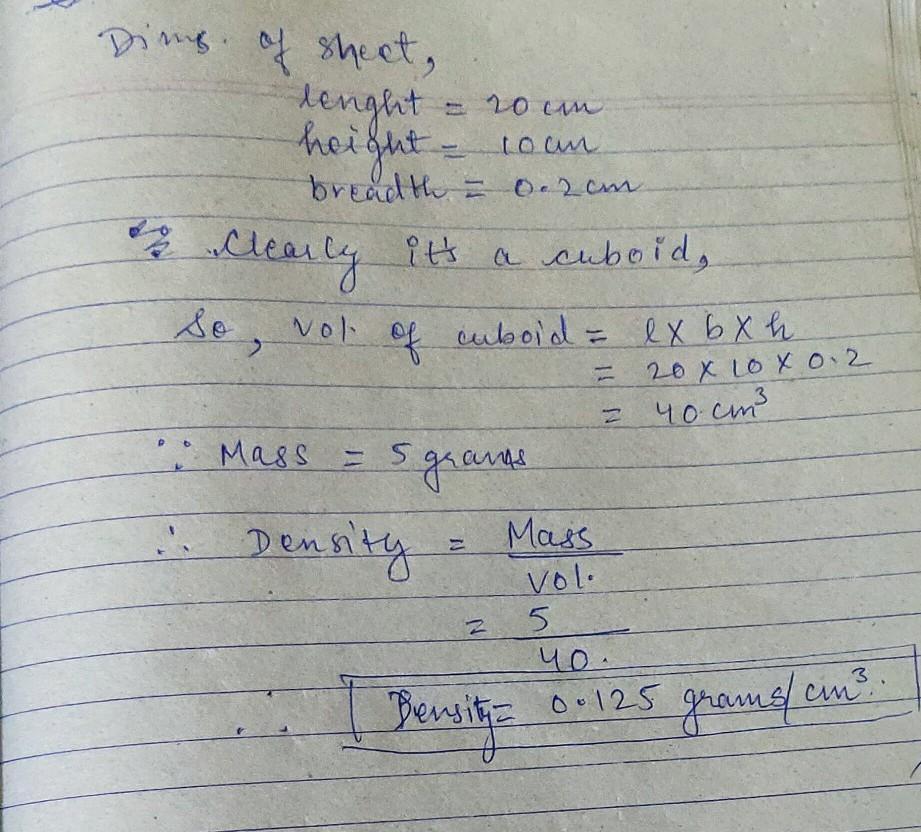 Dims. of sheet,
lenght = 20 cm
height = 10 cm
breadth = 0.2 cm
Clearly it's a cuboid,
So, vol. of cuboid = l × b × h
= 20 × 10 × 0.2
= 40 cm³
∵ Mass = 5 grams
∴ Density = Mass
vol.
= 5
40.
∴ Density = 0.125 grams/cm³.